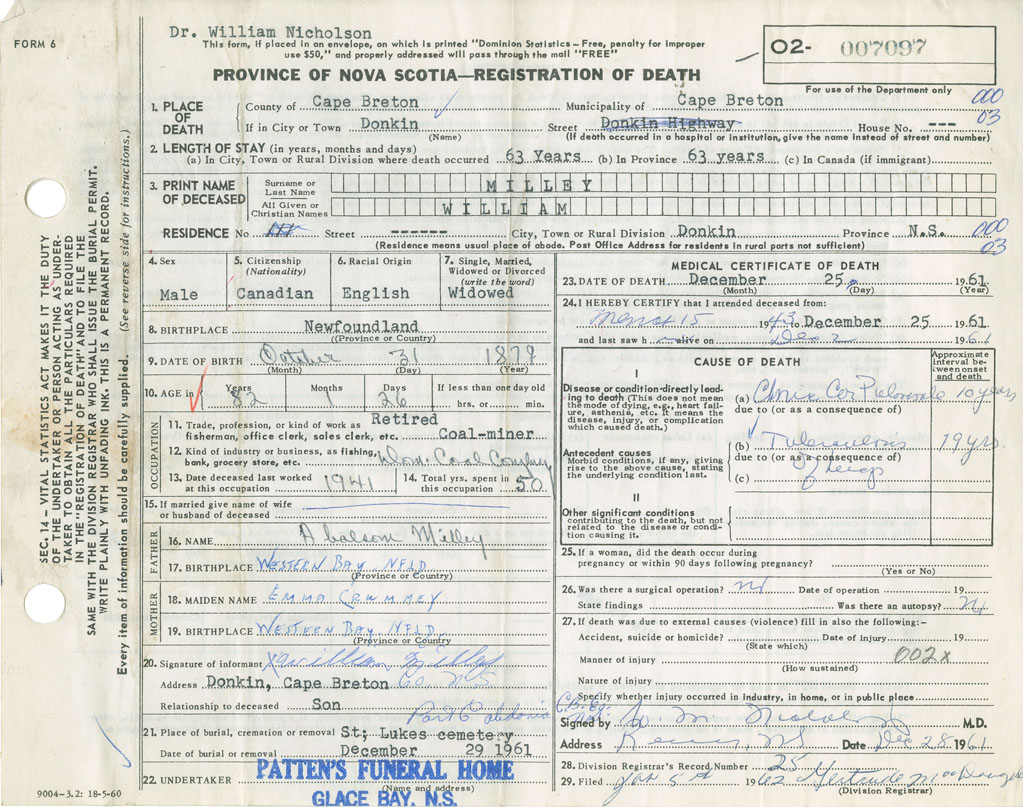 FORM 6
Dr. William Nicholson
This form, if placed in an envelope, on which is printed "Dominion Statistics – Free, penalty for improper
use $50," and properly addressed will pass through the mail "FREE"
O2- 007097
For use of the Department only
PROVINCE OF NOVA SCOTIA—REGISTRATION OF DEATH
000
03
1. PLACE OF DEATH
County of Cape Breton Municipality of Cape Breton
If in City or Town Donkin (Name) Street Donkin Highway House No. ---
(If death occurred in a hospital or institution, give the name instead of street and number)
2. LENGTH OF STAY (in years, months and days)
(a) In City, Town or Rural Division where death occurred 63 Years (b) In Province 63 years (c) In Canada (if immigrant)
3. PRINT NAME OF DECEASED
Surname or Last Name MILLEY
All Given or Christian Names WILLIAM
RESIDENCE No Street ------ City, Town or Rural Division Donkin Province N.S. 000
03
(Residence means usual place of abode. Post Office Address for residents in rural parts not sufficient)
4. Sex Male
5. Citizenship (Nationality) Canadian
6. Racial Origin English
7. Single, Married, Widowed or Divorced (write the word) Widowed
8. BIRTHPLACE Newfoundland
(Province or Country)
9. DATE OF BIRTH October 31 1879
(Month) (Day) (Year)
10. AGE in Years 82 Months 1 Days 26 If less than one day old hrs. or min.
OCCUPATION
11. Trade, profession, or kind of work as Retired
fisherman, office clerk, sales clerk, etc. Coal-miner
12. Kind of industry or business, as fishing,
bank, grocery store, etc. Dom. Coal Company
13. Date deceased last worked
at this occupation 1941
14. Total yrs. spent in
this occupation 50
15. If married give name of wife
or husband of deceased
FATHER
16. NAME Abalsom Milley
17. BIRTHPLACE WESTERN BAY NFLD
(Province or Country)
MOTHER
18. MAIDEN NAME EMMA CRUMMEY
19. BIRTHPLACE WESTERN BAY NFLD.
(Province or Country
20. Signature of informant x William Milley
Address Donkin, Cape Breton Co. N.S
Relationship to deceased Son
Port Caledonia
21. Place of burial, cremation or removal St; Lukes cemetery
Date of burial or removal December 29 1961
22. UNDERTAKER PATTEN'S FUNERAL HOME
(Name and address)
GLACE BAY, N.S.
9004–3.2: 18-5-60
MEDICAL CERTIFICATE OF DEATH
23. DATE OF DEATH December 25 1961
(Month) (Day) (Year)
24. I HEREBY CERTIFY that I attended deceased from:
March 15 1943 to December 25 1961
and last saw h alive on Dec 2 1961
CAUSE OF DEATH
Approximate interval between onset and death
I
Disease or condition directly leading to death (This does not mean
the mode of dying, e.g., heart failure, asthenia, etc. It means the
disease, injury, or complication
which caused death.)
(a) Chronic Cor Pulmonale 10 years
due to (or as a consequence of)
Antecedent causes
Morbid conditions, if any, giving
rise to the above cause, stating
the underlying condition last.
(b) Tuberculosis 19 yrs.
due to (or as a consequence of)
of lungs
(c)
II
Other significant conditions
contributing to the death, but not
related to the disease or condition causing it.
25. If a woman, did the death occur during
pregnancy or within 90 days following pregnancy?
(Yes or No)
26. Was there a surgical operation? Date of operation 19
State findings Was there an autopsy?
27. If death was due to external causes (violence) fill in also the following:–
Accident, suicide or homicide? Date of injury 19
(State which)
Manner of injury 002x
(How sustained)
Nature of injury
Specify whether injury occurred in industry, in home, or in public place
Signed by W. M. Nicholson M.D.
Address Date Dec 28 1961
28. Division Registrar's Record Number 25
29. Filed Jan 5th 1962 Gertrude MacDougall
(Division Registrar)
SEC. 14 – VITAL STATISTICS ACT MAKES IT THE DUTY
OF THE UNDERTAKER OR PERSON ACTING AS UNDER-
TAKER TO OBTAIN ALL THE PARTICULARS REQUIRED
IN THE "REGISTRATION OF DEATH" AND TO FILE THE
SAME WITH THE DIVISION REGISTRAR WHO SHALL ISSUE THE BURIAL PERMIT.
WRITE PLAINLY WITH UNFADING INK. THIS IS A PERMANENT RECORD.
Every item of information should be carefully supplied. (See reverse side for instructions.)